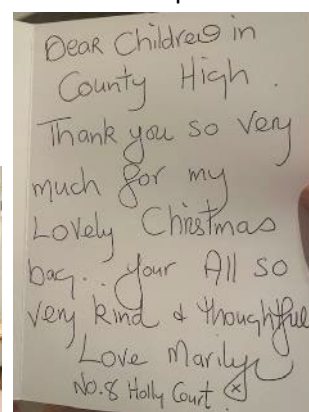 Dear Children in
County High.
Thank you so very
much for my
Lovely Christmas
bag.. your All so
very kind & thoughtful
Love Marilyn
No.8 Holly Court. x